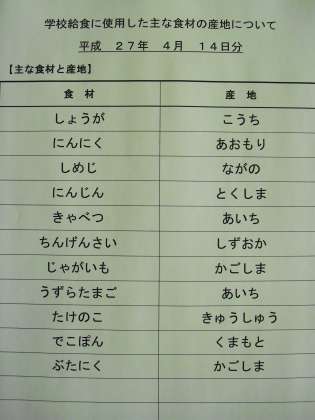 学校給食に使用した主な食材の産地について
平成 27年 4月 14日分
【主な食材と産地】
食 材 産 地
しょうが こうち
にんにく あおもり
しめじ ながの
にんじん とくしま
きゃべつ あいち
ちんげんさい しずおか
じゃがいも かごしま
うずらたまご あいち
たけのこ きゅうしゅう
でこぽん くまもと
ぶたにく かごしま